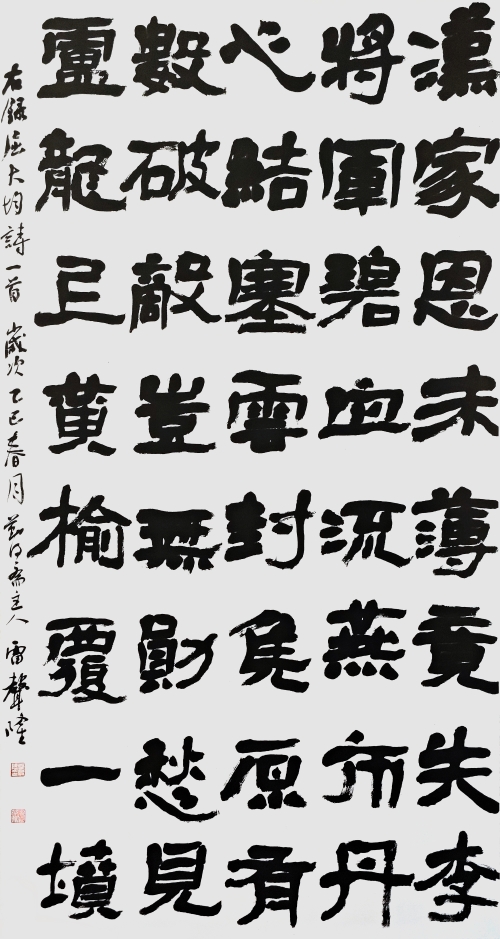 漢家恩未薄竟失李
將軍碧血流燕市丹
心結塞雲封侯原有
數破敵豈無勛愁見
盧龍 黃榆覆一墳
右錄屈大均詩一首 歲次乙巳春月 齋主人 雷聲隆